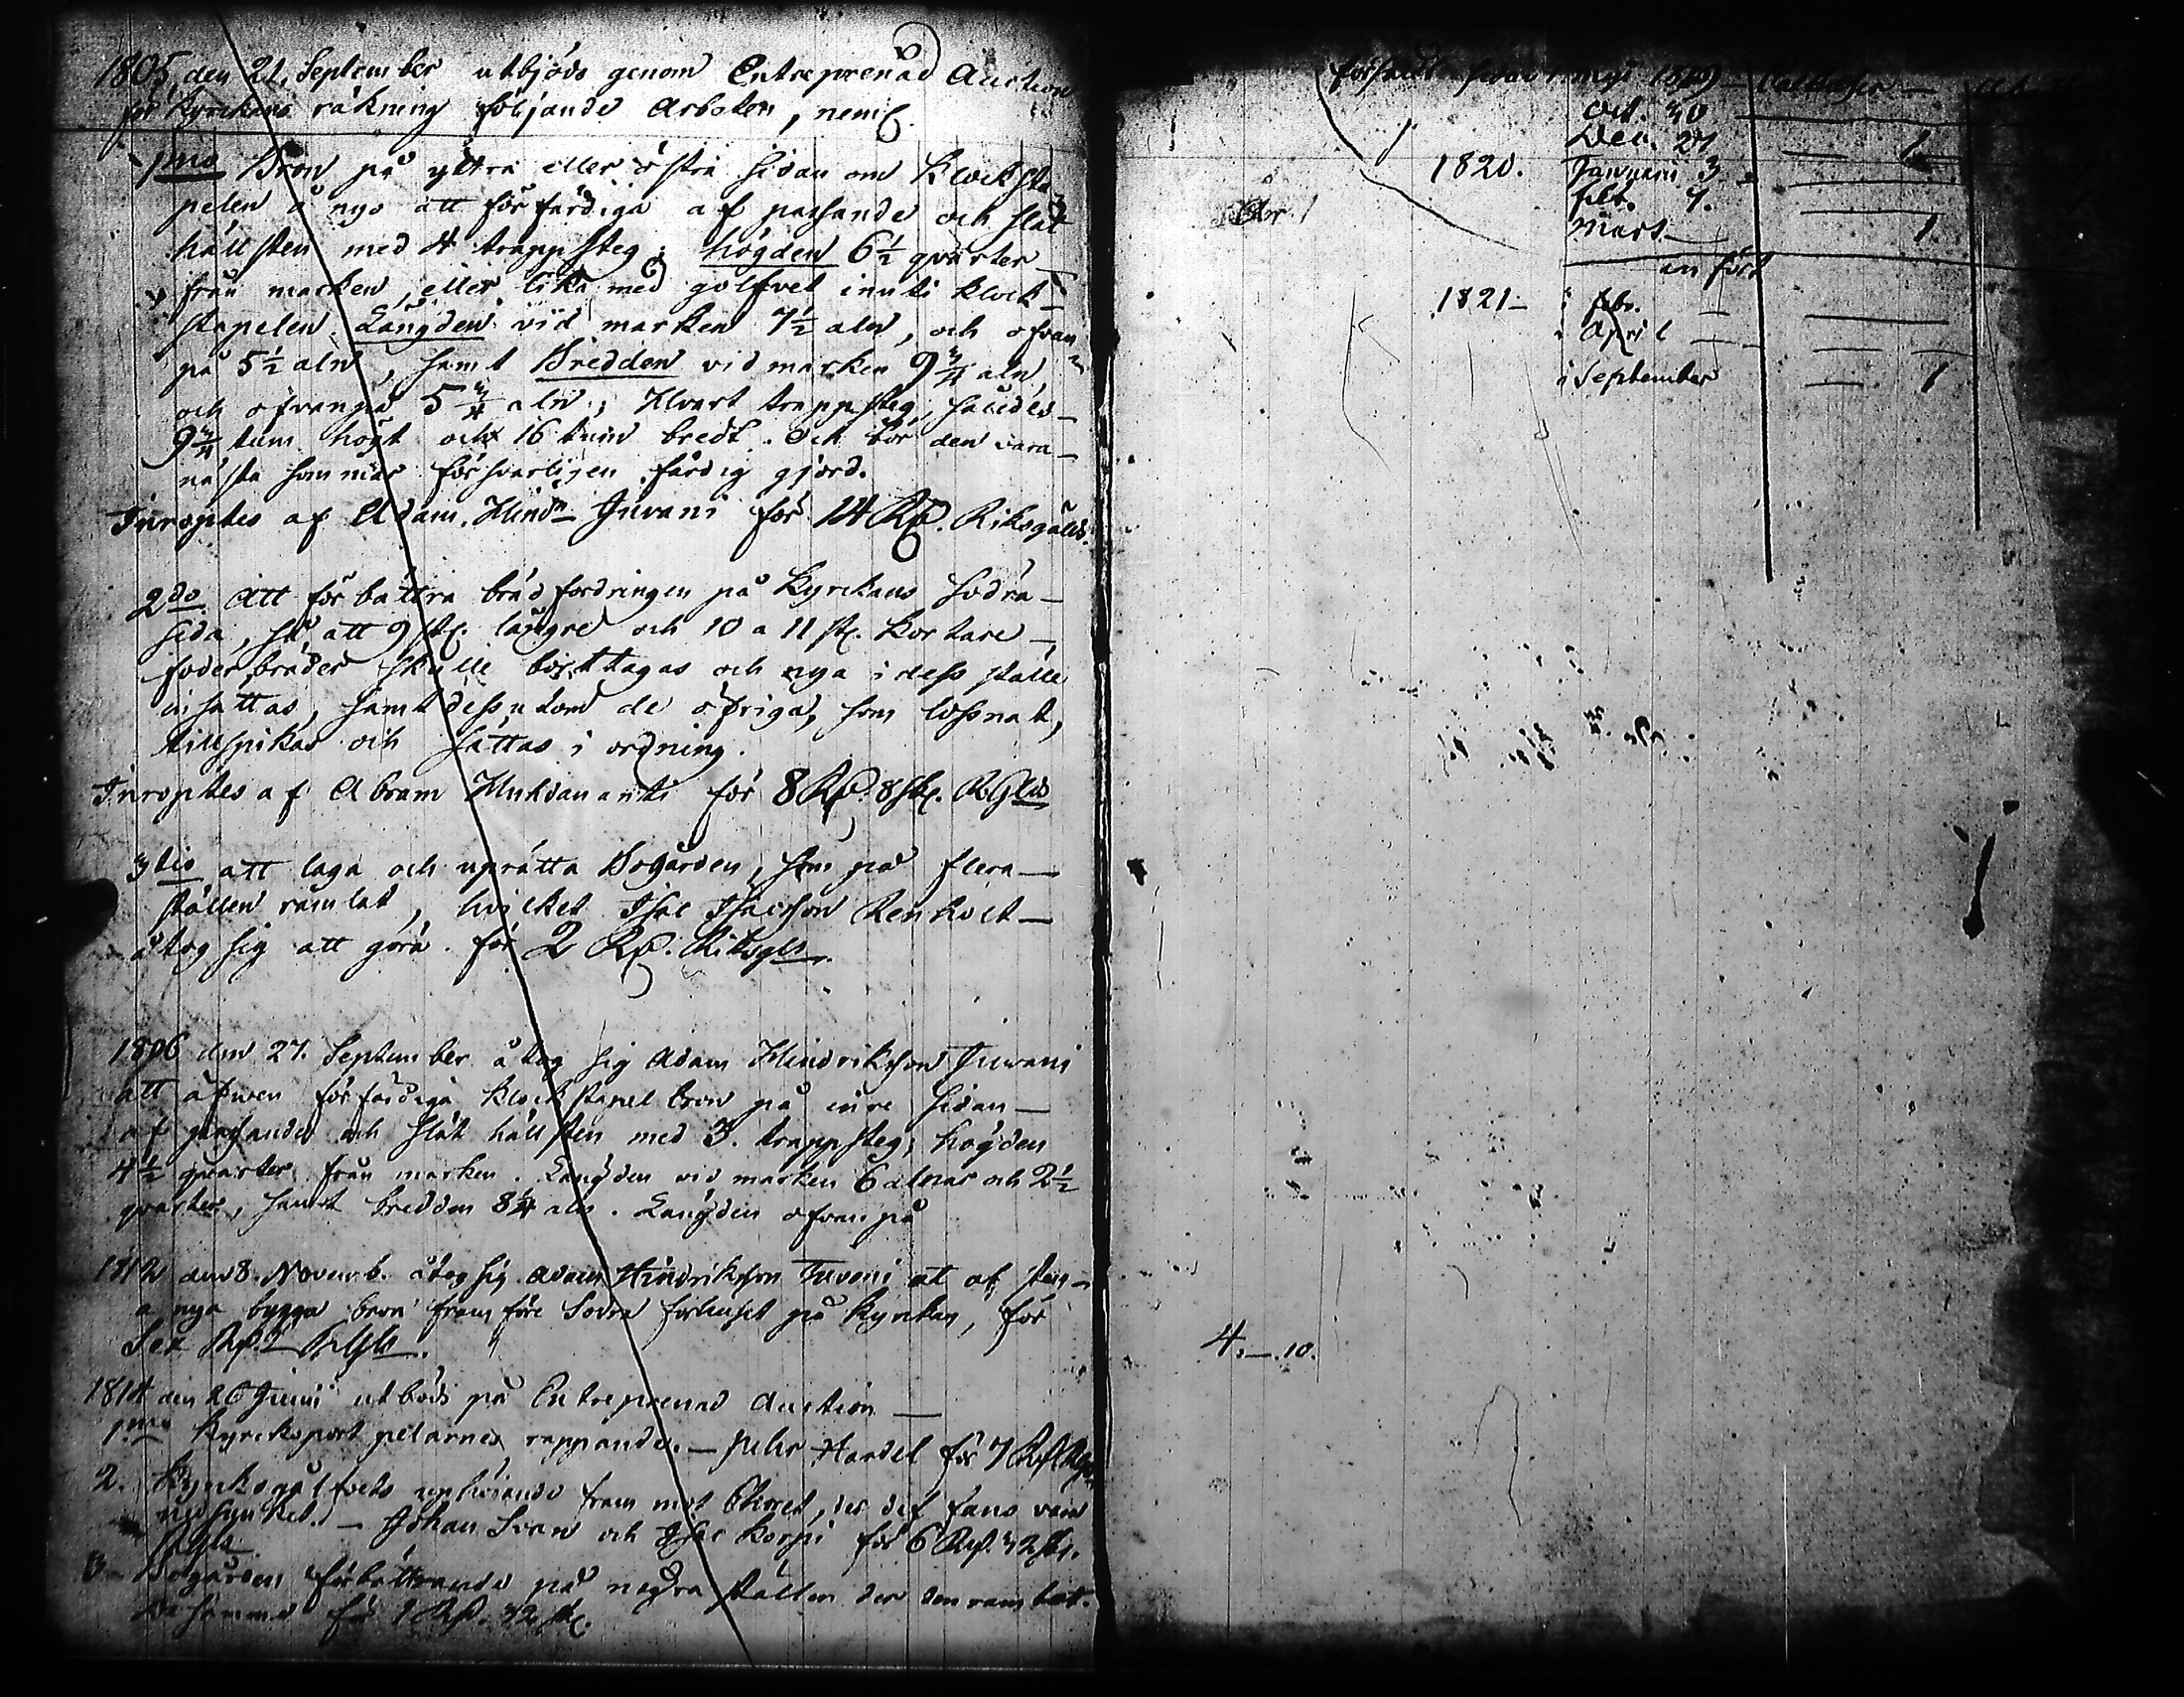 1805 den 21. September utbjöds genom Entreprenad Auction
för Kyrckans räkning följande Arbeten, neml.
1mo Bron på yttra eller östra sidan om Klocksta
pelen å nyo att förfärdiga af passande och slät
hällsten med 4 trappsteg; högden 6½ qvarter
från marken, eller lika med golfvet innuti klock-
stapelen. Längden vid marken 7½ aln, och ofvan
på 5½ aln, samt Bredden vid marken 9¾ aln,
och ofvanpå 5¾ aln; Hvart trappsteg, således
9¾ tum högt och 16 tum bredt. Och bör den vara
nästa sommar försvarligen färdig gjord.
Inroptes af Adam Hindn Juvani för 14 Rd. Riksgälds.
2do Att förbättra brädfordringen på Kyrckans södra
sida, så att 9 st. längre och 10 a 11 st. kortare
foderbräder skulle borttagas och nya i dess ställe
insättas, samt dessutom de öfriga, som lossnat,
tillspikas och sättas i ordning.
Inroptes af Abram Huhdananti för 8 Rd. 8 sk. RGlds
3tio att laga och uprätta Bogården, som på flera
ställen ramlat, hvilket Isac Isacsson
åtog sig att göra för 2 Rd. Riksgls.
1806 den 27. September åtog sig Adam Hindriksson Juvani
att äfwen förfärdiga klockstapel bron på inre sidan
af passande och slät hällsten med 3. trappsteg; högden
4½ qvarter från marken. Längden vid marken 6 alnar och 2½
qvarter, samt bredden 8¼ aln. Längden ofvanpå
1812 den 8. Novemb. åtog sig Adam Hindriksson Juvani at af sten
å nya bygga bron framföre Södra förhuset på kyrkan, för
Sex Rd. RGls.
1814 den 26 Junii utböds på Entreprenad Auction
1mo Kyrckoport pelarnes rappande. - Pehr Hardel för 7 Rd RGs
2. Kyrkogålfvets uphöjande fram mot Choret, der det fans vara
nedsunket. - Johan Svan och Isac Korpi för 6 Rd. 32 sk.
RGls
3 Bogården förbättrande på några ställen der den ramlat.
De samma för 1 Rd. 32 sk.
Oct. 30
Dec. 27 1
1820. Januarii 3
febr. 9.
Mars 1
1821 febr.
April
September 1
4. — 10.